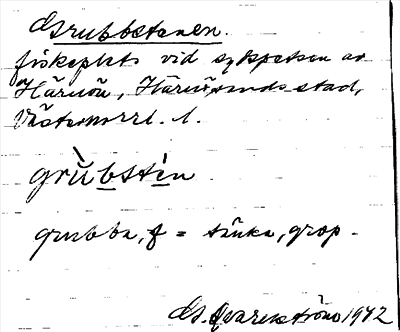 Grubbstenen.
fiskeplats vid sydspetsen av
Härnön, Härnösands stad,
Västernorrl. l.
grùbstèn
grubba, f = sänka, grop.
G. Qvarnström 1972